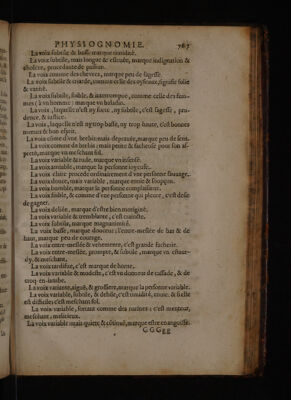 PHYSIOGNOMIE. 767
La voix subtile & basse marque timidité.
La voix subtile, mais longue & estenduë, marque indignation &
cholere, procedante de passion.
La voix comme des chevres, marque peu de sagesse.
La voix subtile & criarde, comme celle des oyseaux, signifie folie
& vanité.
La voix subtile, foible, & interrompuë, comme celle des fem-
mes (à vn homme) marque vn
La voix, laquelle n'est ny forte, ny subtile, c'est sagesse, pru-
dence, & iustice.
La voix, laquelle n'est ny trop basse, ny trop haute, c'est bonnes
mœurs & bon esprit.
La voix côme d'vne brebis mais marque peu de sens.
La voix comme de brebis; mais petite & fascheuse pour son as-
preté, marque vn meschant fol.
La voix variable & rude, marque vn insensé.
La voix amiable, marque la personne ioyeuse.
La voix claire procede ordinairement d'vne personne sauuage.
La voix douce, mais variable, marque enuie & soupçon.
La voix humble, marque la personne complaisante.
La voix foible, & comme d'vne personne qui pleure, c'est desir
de gagner.
La voix deliée, marque d'estre bien morigené.
La voix variable & tremblante, c'est crainte.
La voix subtile, marque magnanimité.
La voix basse, marque douceur l'entre-meslée de bas & de
haut, marque peu de courage.
La voix entre-meslée & vehemente, c'est grande facherie.
La voix entre-meslée, prompte, & subtile, marque vn estour-
dy, & meschant.
La voix tardiue, c'est marque de honte.
La voix variable & modeste, c'est vn donneur de cassade, & de
croq-en-iambe.
La voix variante, aiguë, & grossiere, marque la personne variable.
La voix variable, subtile, & debile, c'est timidité, creuë. & si elle
est difficile; c'est meschant fol.
La voix variable, sortant comme des narines: c'est menteur,
meschant, malicieux.
La voix variable mais quiete & côtinuë, marque estre en angoisse.
GGGgg